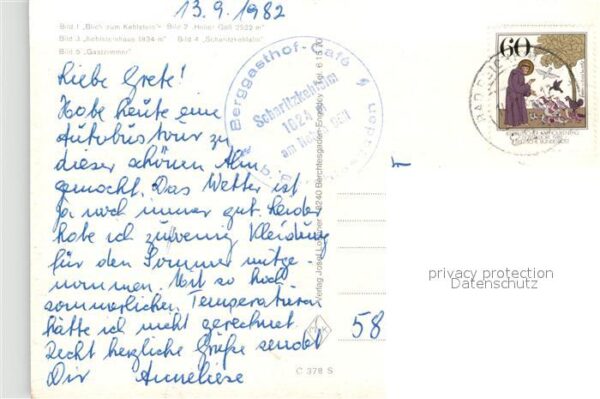 13.9.1982
Bild 1 „Blick zum Kehlstein" Bild 2 „Hoher Göll 2522 m"
Bild 3 „Kehlsteinhaus 1834 m" Bild 4 „Scharitzkehlalm"
Bild 5 „Gastzimmer"
Liebe Grete!
Habe heute eine
Autobustour zu
dieser schönen Alm
gemacht. Das Wetter ist
ja noch immer gut. Leider
habe ich zuwenig Kleidung
für den Sommer mitge-
nommen. Mit so hoch
sommerlichen Temperaturen
hätte ich nicht gerechnet.
Recht herzliche Grüße sendet
Dir Anneliese
Berggasthof-Café
Scharitzkehlalm
1024 m
am Hohen Göll
Verlag Josef 8240 Berchtesgaden
C 378 S
58
60
privacy protection
Datenschutz